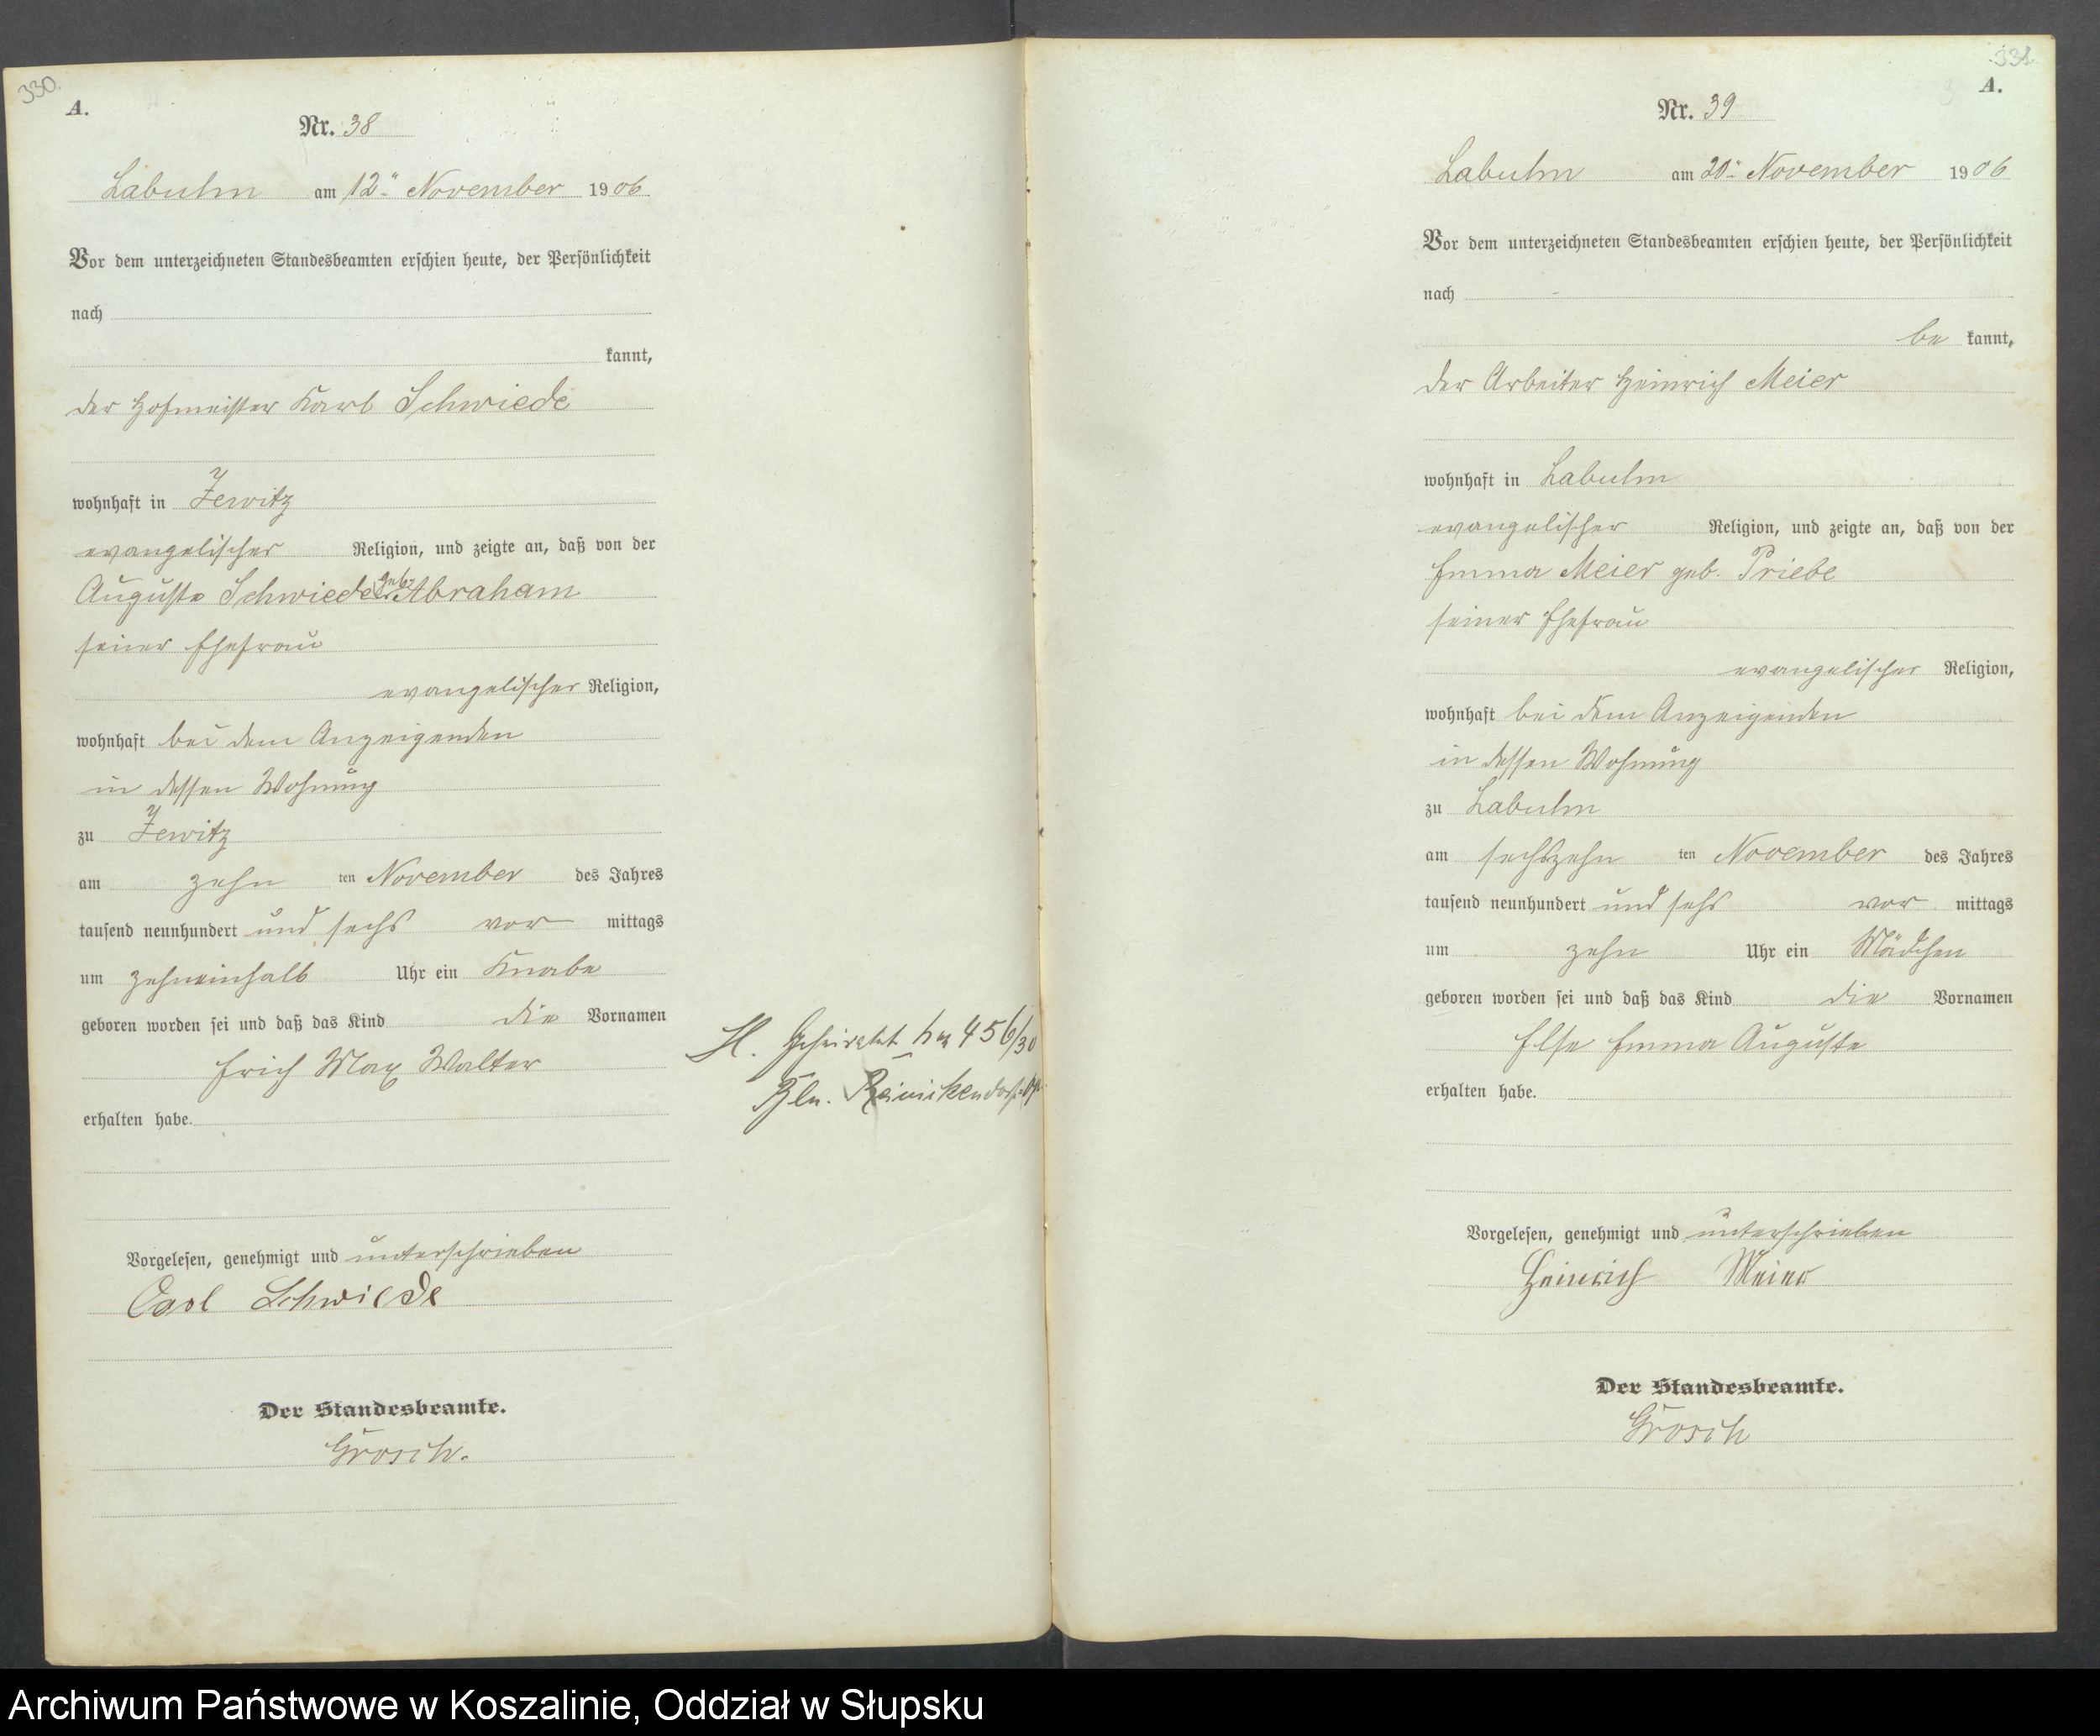 330.
A.
Nr. 38
Labuhn am 12ten November 1906
Vor dem unterzeichneten Standesbeamten erschien heute, der Persönlichkeit
nach
kannt,
der Hofmeister Karl Schwiede
wohnhaft in Zewitz
evangelischer Religion, und zeigte an, daß von der
Auguste Schwiede geb. Abraham
seiner Ehefrau
evangelischer Religion,
wohnhaft bei dem Anzeigenden
in dessen Wohnung
zu Zewitz
am zehn ten November des Jahres
tausend neunhundert und sechs vor mittags
um zehneinhalb Uhr ein Knabe
geboren worden sei und daß das Kind die Vornamen
Erich Max Walter
erhalten habe.
Vorgelesen, genehmigt und unterschrieben
Carl Schwiede
Der Standesbeamte.
Grosch.
H. Geheiratet Nr. 456/30
Bln. Reinickendorf
331.
A.
Nr. 39
Labuhn am 20ten November 1906
Vor dem unterzeichneten Standesbeamten erschien heute, der Persönlichkeit
nach
be kannt,
der Arbeiter Heinrich Meier
wohnhaft in Labuhn
evangelischer Religion, und zeigte an, daß von der
Emma Meier geb. Priebe
seiner Ehefrau
evangelischer Religion,
wohnhaft bei dem Anzeigenden
in dessen Wohnung
zu Labuhn
am sechszehn ten November des Jahres
tausend neunhundert und sehs vor mittags
um zehn Uhr ein Mädchen
geboren worden sei und daß das Kind die Vornamen
Else Emma Auguste
erhalten habe.
Vorgelesen, genehmigt und unterschrieben
Heinrich Meier
Der Standesbeamte.
Grosch
Archiwum Państwowe w Koszalinie, Oddział w Słupsku